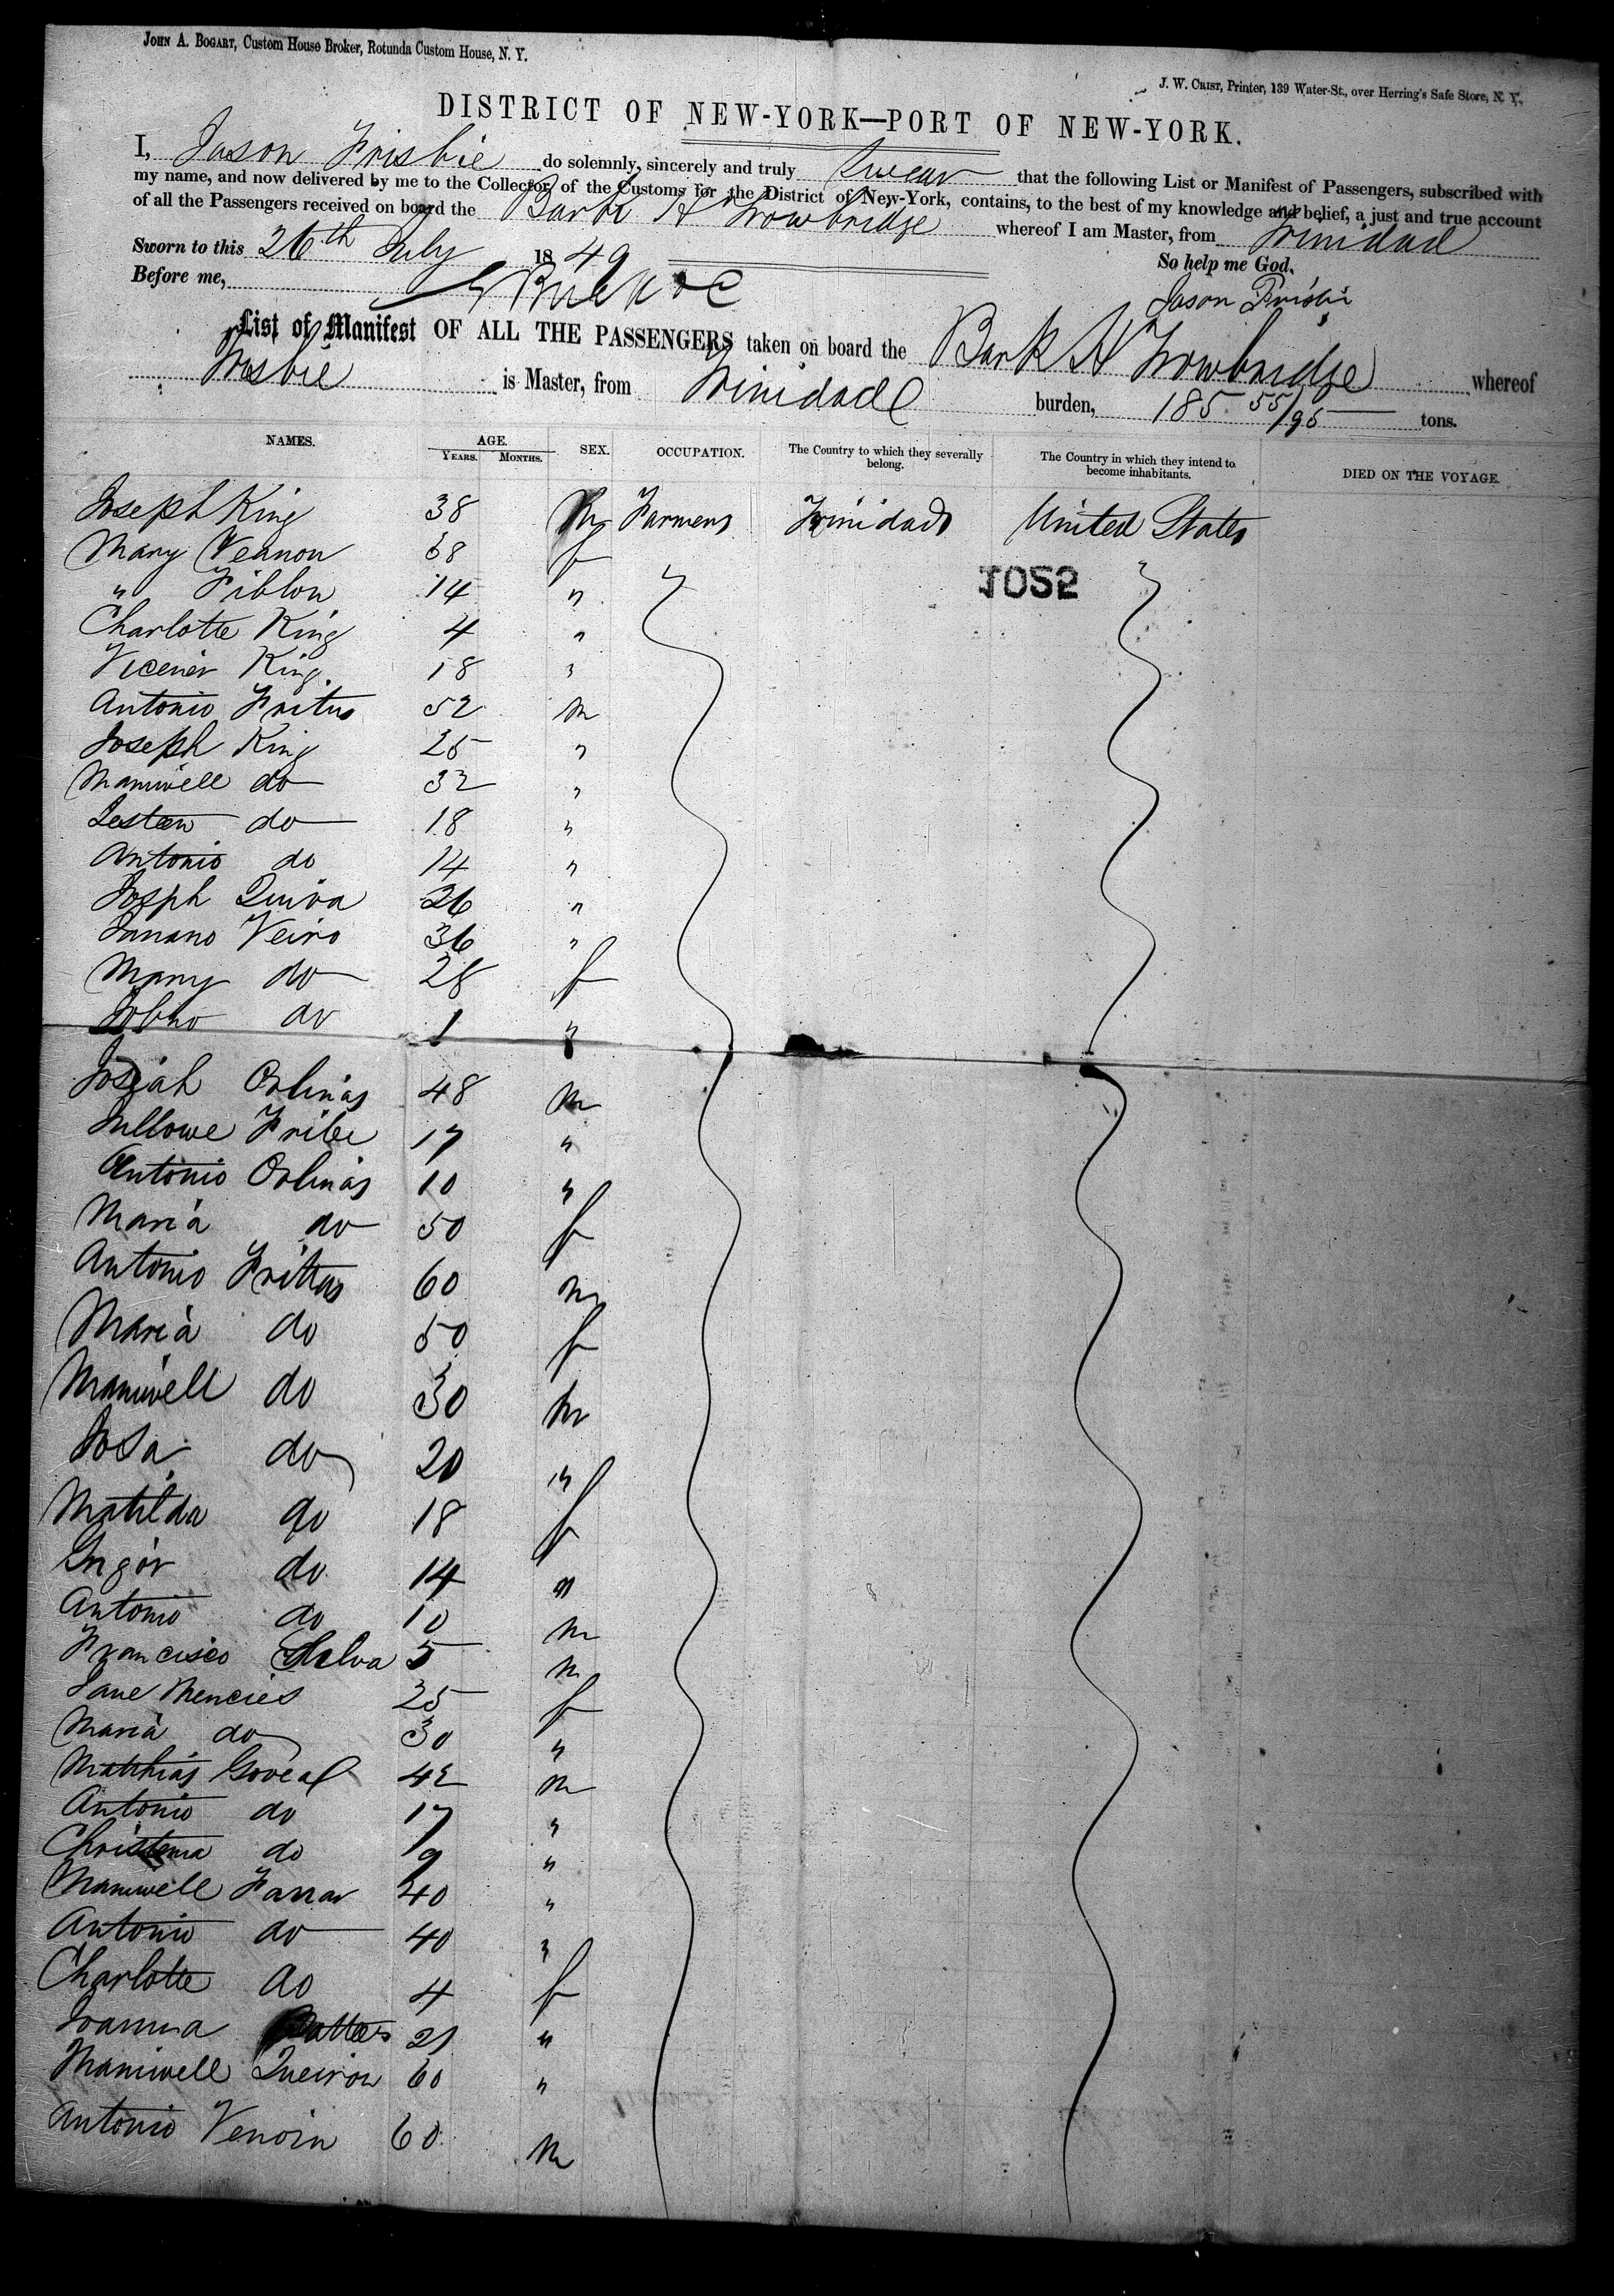 JOHN A. BOGART, Custom House Broker, Rotunda Custom House, N. Y.
J. W. CRIST, Printer, 139 Water-St., over Herring's Safe Store, N. Y.
DISTRICT OF NEW-YORK—PORT OF NEW-YORK.
I, Jason Frisbie do solemnly, sincerely and truly swear that the following List or Manifest of Passengers, subscribed with
my name, and now delivered by me to the Collector of the Customs for the District of New-York, contains, to the best of my knowledge and belief, a just and true account
of all the Passengers received on board the Bark H Trowbridge whereof I am Master, from Trinidad
Sworn to this 26th July 1849 So help me God.
Before me, Jason Frisbie
List or Manifest OF ALL THE PASSENGERS taken on board the Bark H Trowbridge whereof
Frisbie is Master, from Trinidad burden, 185 55/95 tons.
NAMES. AGE. YEARS. MONTHS. SEX. OCCUPATION. The Country to which they severally belong. The Country in which they intend to become inhabitants. DIED ON THE VOYAGE.
Joseph King 38 M Farmers Trinidad United States
Mary Vernon 68 f
1052
" 14 "
Charlotte King 4 "
King 18 "
Antonio Fritus 52 m
Joseph King 25 "
Manuwell do 32 "
do 18 "
Antonio do 14 "
Josph Quiva 26 "
Veiro 36 "
Mary do 28 f
do 1 "
Josiah Orlinas 48 m
17 "
Antonio Orlinas 10 "
Maria do 50 f
Antonio Frittas 60 m
Maria do 50 f
Manuwell do 30 m
Josa do 20 "
Matilda do 18 f
do 14 "
Antonio do 10 m
Francisco Selva 5 m
Jane Mencies 25 f
Maria do 30 "
Matthias Goveal 42 m
Antonio do 17 "
Christema do 9 "
Manuwell Farrar 40 "
Antonio do 40 "
Charlotte do 4 f
Joanna 21 "
Manuwell Queirow 60 "
Antonio Venoin 60 m